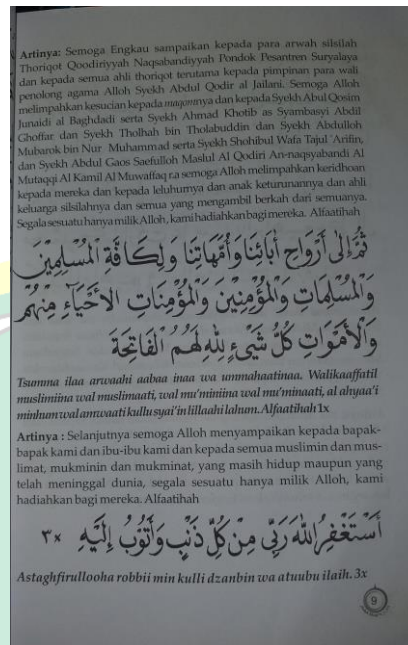 Artinya: Semoga Engkau sampaikan kepada para arwah silsilah
Thoriqot Qoodiriyyah Naqsabandiyyah Pondok Pesantren Suryalaya
dan kepada semua ahli thoriqot terutama kepada pimpinan para wali
penolong agama Alloh Syekh Abdul Qodir al Jailani. Semoga Alloh
melimpahkan kesucian kepada maqomnya dan kepada Syekh Abul Qosim
Junaidi al Baghdadi serta Syekh Ahmad Khotib as Syambasyi Abdil
Ghoffar dan Syekh Tholhah bin Tholabuddin dan Syekh Abdulloh
Mubarok bin Nur Muhammad serta Syekh Shohibul Wafa Tajul 'Arifin,
dan Syekh Abdul Gaos Saefulloh Maslul Al Qodiri An-naqsyabandi Al
Mutaqqi Al Kamil Al Muwaffaq r.a semoga Alloh melimpahkan keridhoan
kepada mereka dan kepada leluhurnya dan anak keturunannya dan ahli
keluarga silsilahnya dan semua yang mengambil berkah dari semuanya.
Segala sesuatu hanya milik Alloh, kami hadiahkan bagi mereka. Alfaatihah
ثُمَّ إِلَى أَرْوَاحِ أَبَائِنَا وَأُمَّهَاتِنَا وَلِكَافَّةِ الْمُسْلِمِيْنَ
وَالْمُسْلِمَاتِ وَالْمُؤْمِنِيْنَ وَالْمُؤْمِنَاتِ الْأَحْيَاءِ مِنْهُمْ
وَالْأَمْوَاتِ كُلُّ شَيْءٍ لِلّٰهِ لَهُمُ الْفَاتِحَةَ
Tsumma ilaa arwaahi aabaa inaa wa ummahaatinaa. Walikaaffatil
muslimiina wal muslimaati, wal mu'miniina wal mu'minaati, al ahyaa'i
minhum wal amwaati kullu syai'in lillaahi lahum. Alfaatihah 1x
Artinya : Selanjutnya semoga Alloh menyampaikan kepada bapak-
bapak kami dan ibu-ibu kami dan kepada semua muslimin dan mus-
limat, mukminin dan mukminat, yang masih hidup maupun yang
telah meninggal dunia, segala sesuatu hanya milik Alloh, kami
hadiahkan bagi mereka. Alfaatihah
أَسْتَغْفِرُ اللهَ رَبِّي مِنْ كُلِّ ذَنْبٍ وَأَتُوْبُ إِلَيْهِ ٣×
Astaghfirullooha robbii min kulli dzanbin wa atuubu ilaih. 3x
9